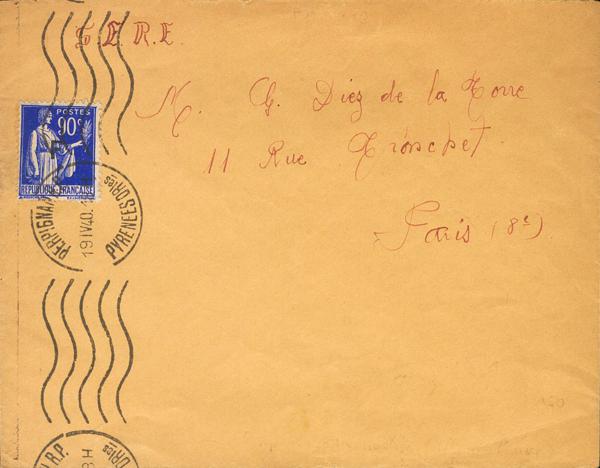 S.E.R.E.
M. G. Diez de la Torre
11 Rue Tronchet
Paris (8e)
POSTES
90c
F
REPUBLIQUE FRANÇAISE
PERPIGNAN
19 IV 40
PYRENEES ORles
R.P.
8 H
ORles